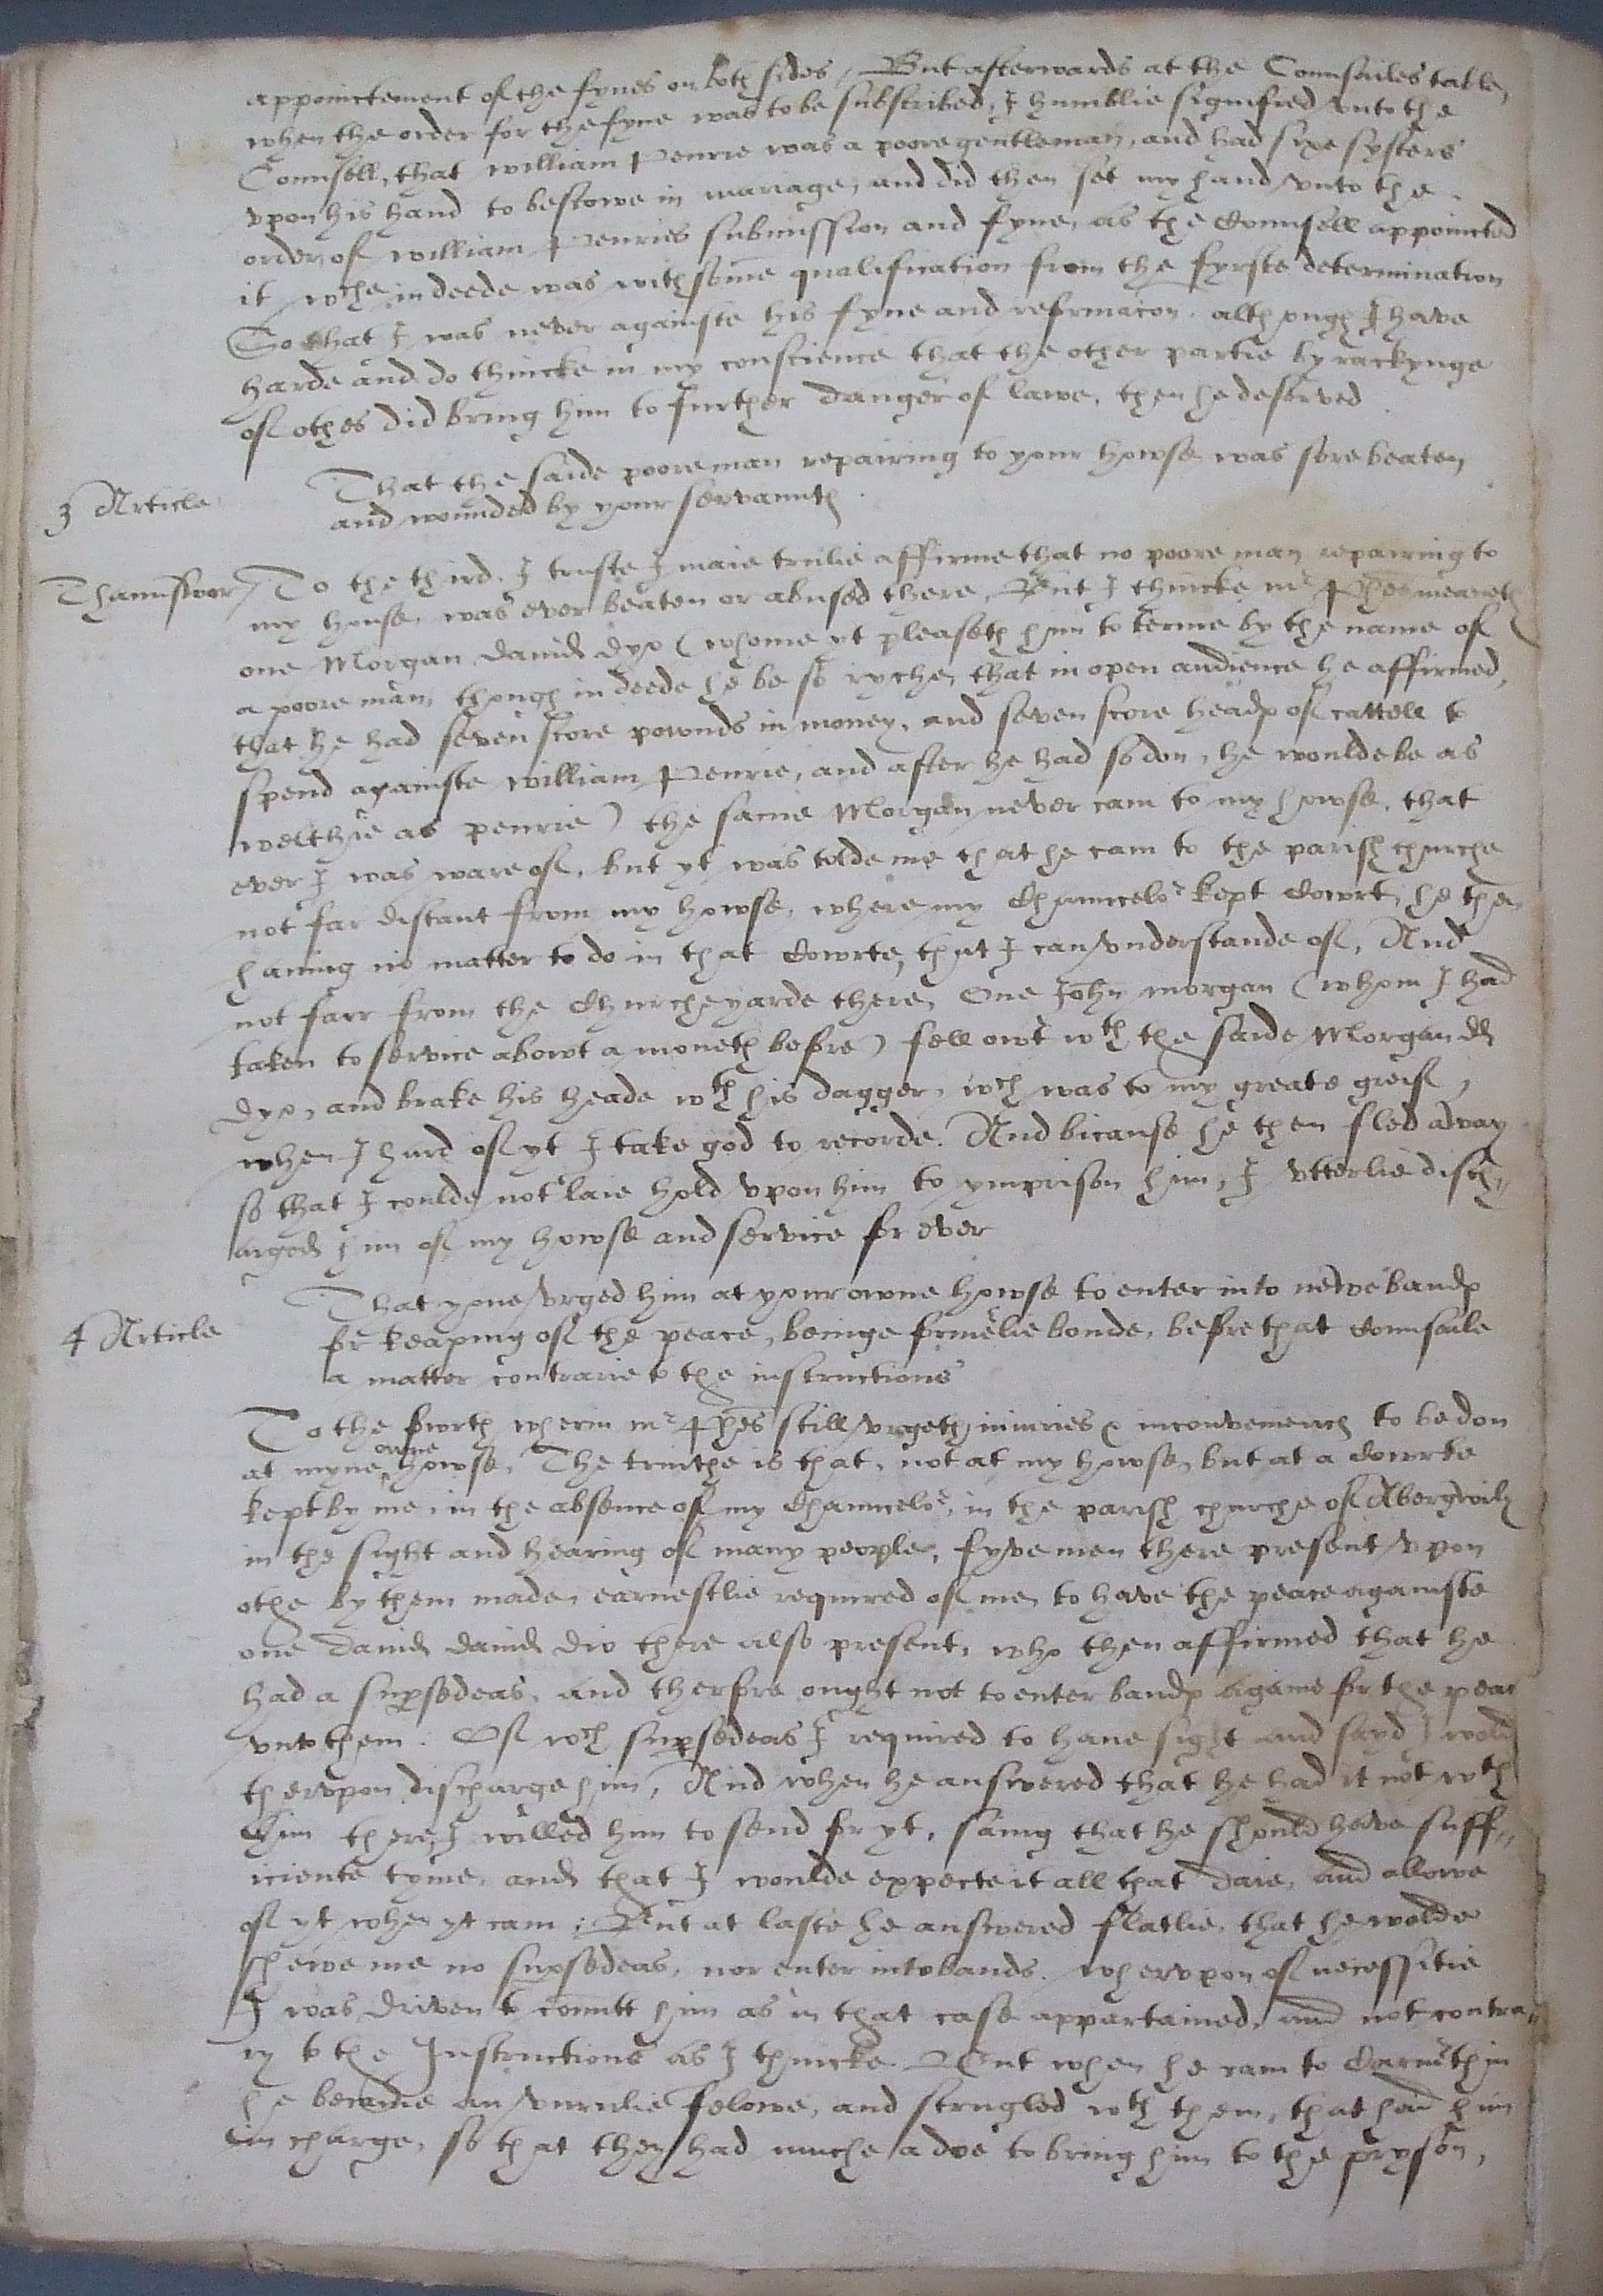 appoinctement of the fynes on both sides, But afterwards at the Counsailes table,
when the order for the fyne was to be subscribed, I humblie signified unto the
Counsell, that william Penrie was a poore gentleman, and had sixe systers
upon his hand to bestowe in mariage, and did then set my hand unto the
order of william Penries submission and fyne, as the Counsell appoincted
it, wche indeede was with some qualification from the fyrste determination
So that I was never againste his fyne and reformacon. although I have
harde and do thincke in my conscience that the other partie by rackynge
of othes did bring him to further danger of lawe, then he deserved.
3 Article
That the saide poore man repairing to your howse was sore beaten
and wounded by your servauntes.
Thaunswer
To the third. I truste I maie trulie affirme that no poore man repairing to
my house, was ever beaten or abused there, But I thincke mr Phes meaneth
one Morgan david dyo (whome yt pleaseth him to terme by the name of
a poore man, though indeede he be so ryche, that in open audience he affirmed,
that he had seven score pownds in money, and seven score heades of cattell to
spend againste william Penrie, and after he had so don, he woulde be as
welthie as penrie) the same Morgan never cam to my howse, that
ever I was ware of, but yt was tolde me that he cam to the parish churche
not far distant from my howse, where my Chauncelor kept Cowrt, he then
having no matter to do in that Cowrte, that I can understande of, And
not farr from the Churcheyarde there, One John morgan (whom I had
taken to service abowt a moneth before) fell owt wth the saide Morgan dd
dyo, and brake his heade wth his dagger, wch was to my greate greif,
when I hard of yt I take god to recorde. And bicause he then fled away
so that I coulde not laie hold upon him to ymprison him, I utterlie disch„
arged him of my howse and service for ever
4 Article
That youe urged him at your owne howse to enter into newe bandes
for keaping of the peace, beinge formerlie bonde, before that Counsaile
a matter contrarie to the instructions
To the fowrth wherin mr Phes still urgeth iniuries & inconveniences to be don
at myne owne howse, The truithe is that, not at my howse, but at a Cowrte
kept by me, in the absence of my Chauncelor, in the parish churche of Abergwily
in the sight and hearing of many people, fyve men there present upon
othe by them made, earnestlie required of me, to have the peace againste
one david david dio there also present, who then affirmed that he
had a supsedeas, and therfore ought not to enter bandes againe for the peac
unto them. Of wch supsedeas I required to have sight and sayd I wold
therupon discharge him, And when he answered that he had it not wth
him there, I willed him to send for yt, saing that he should have suff„
iciente tyme, and that I woulde expecte it all that daie, and allowe
of yt when yt cam; But at laste he answered flatlie, that he wolde
shewe me no supsedeas, nor enter into bands. wherupon of necessitie
I was driven to comitt him as in that case appertained, and not contra„
ry to the Instructions as I thincke. But when he cam to Carmethin
he became an unrulie felowe, and strugled wth them, that had him
in charge, so that they had muche adoe to bring him to the pryson,